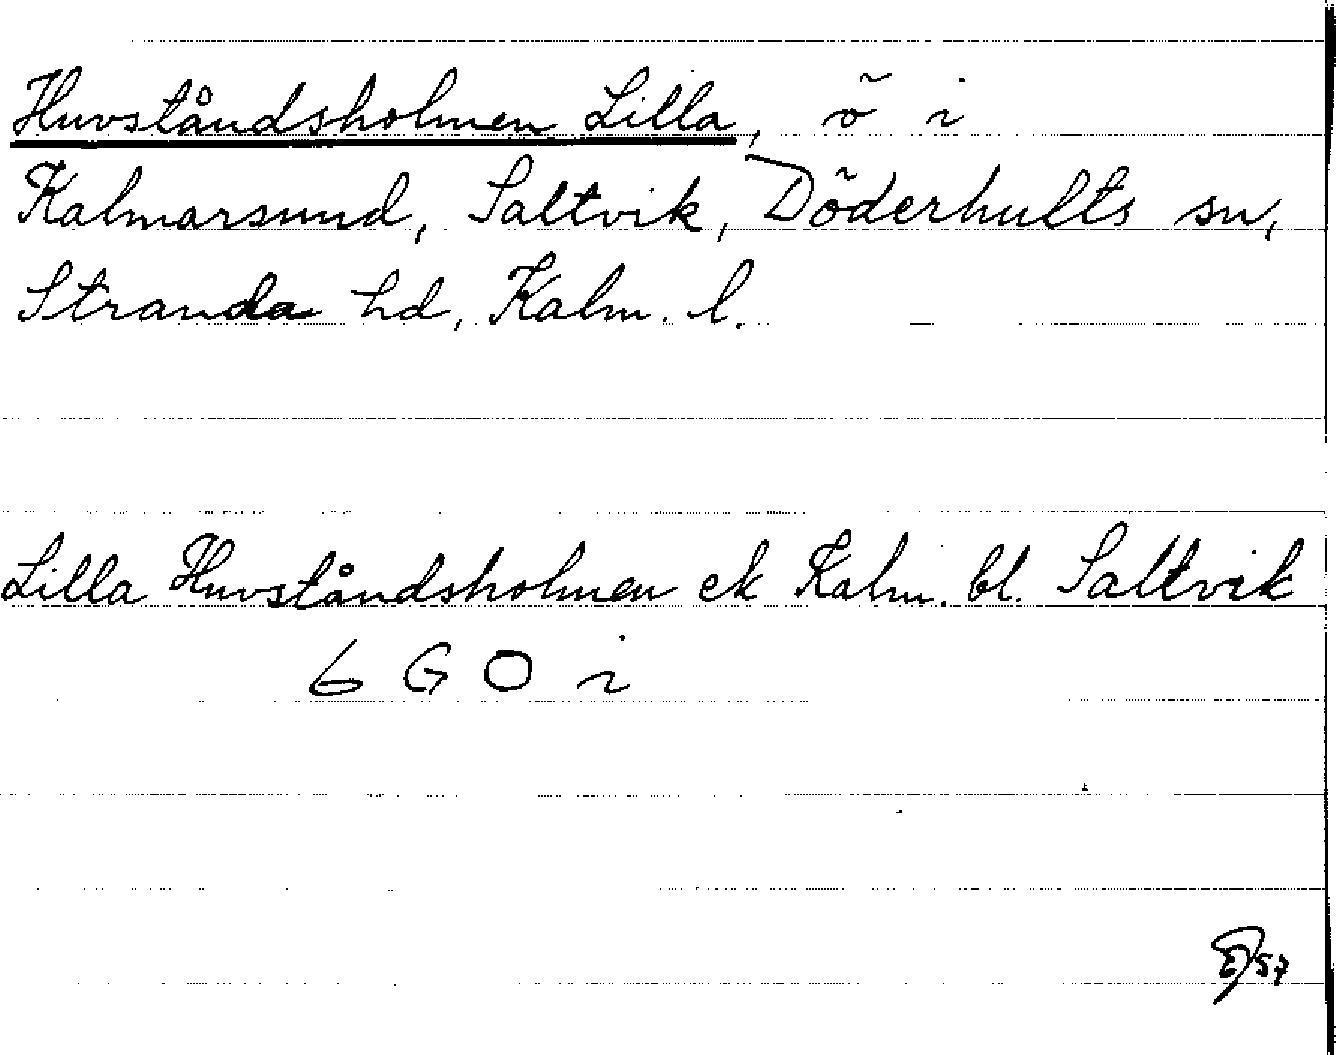 Huvståndsholmen Lilla, ö i
Kalmarsund, Saltvik, Döderhults sn,
Stranda hd, Kalm. l.
Lilla Huvståndsholmen ek Kalm. bl. Saltvik
6 G O i
57